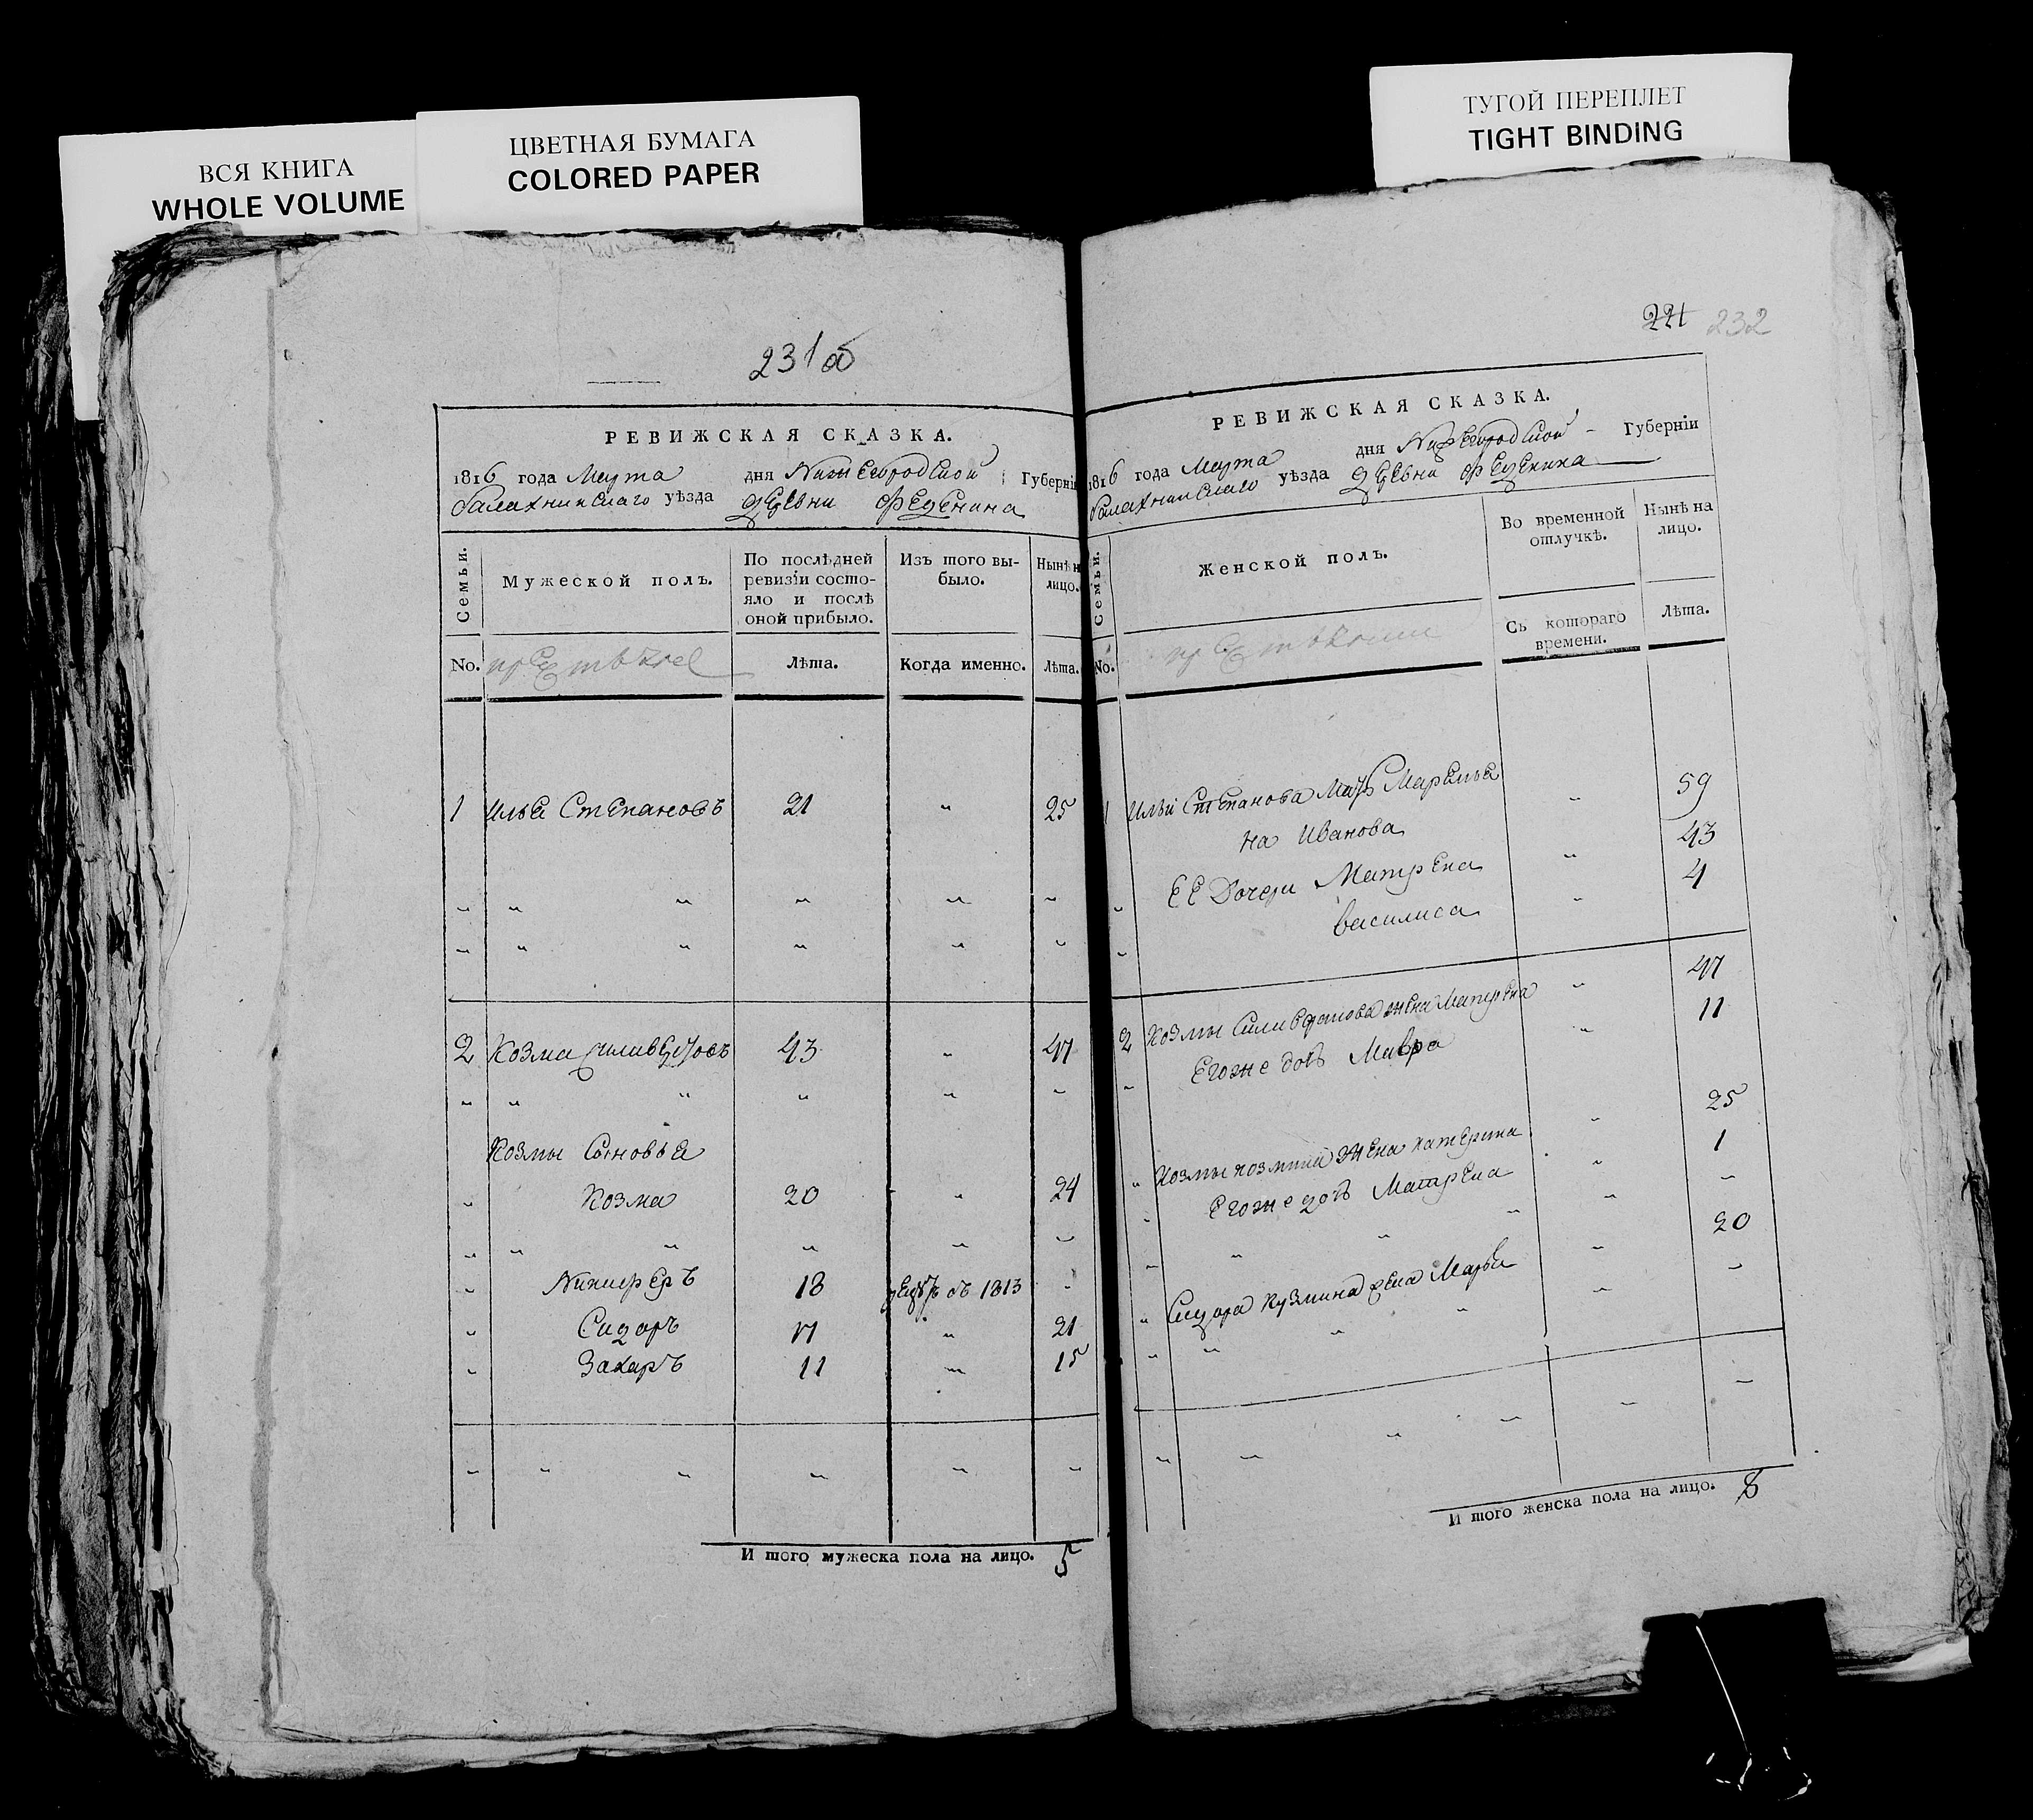 ВСЯ КНИГА
WHOLE VOLUME
ЦВЕТНАЯ БУМАГА
COLORED PAPER
ТУГОЙ ПЕРЕПЛЕТ
TIGHT BINDING
231об
РЕВИЖСКАЯ СКАЗКА.
1816 года Марта дня Нижегородской Губерніи
балахнинскаго уѣзда деревни Феденина
Семьи.
Мужеской полъ.
По послѣдней ревизіи состо-
яло и послѣ
оной прибыло.
Изъ того вы-
было.
Нынѣ н
лицо.
No. Лѣта. Когда именно. Лѣта.
1 Илья Степановъ 21 „ 25
„ „ „ „ „ „
„ „ „ „ „ „
2 Козма Силивестровъ 43 „ 47
„ „ „ „ „ „
Козмы Сыновья
„ Козма 20 „ 24
„ „ „ „ „ „
„ Никиферъ 18 въ 1813 „
„ Сидоръ 17 „ 21
„ Захаръ 11 „ 15
„ „ „ „ „ „
И того мужеска пола на лицо. 5
221 232
РЕВИЖСКАЯ СКАЗКА.
1816 года Марта дня Нижегородской Губерніи
балахнинскаго уѣзда деревни Феденина
Семьи.
Женской полъ.
Во временной
отлучкѣ.
Нынѣ на
лицо.
No. Съ котораго
времени.
Лѣта.
1 Ильи Степанова Мать Маремья „ 59
на Иванова 43
„ ЕЕ Дочери Матрена „ 4
„ василиса „
2 Козмы Силивестрова жена Матрена „ 47
„ Егоже дочь Мавра „ 11
„ Козмы козмина жена катерина „ 25
„ Егоже дочь Матрена „ 1
„ „ „ „ „ „
„ Сидора Кузмина жена Марья „ 20
„ „ „ „ „ „
„ „ „ „ „ „
И того женска пола на лицо. 8